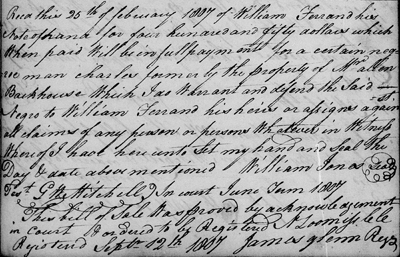 Recd this 25th of february 1807 of William Ferrand his
Note of hand for four hundred and fifty dollars which
When paid Will be in full payment for a certain neg
roe man charles formerly the property of Mrs allen
Backhouse Which I do Warrant and defend the Said
Negro to William Ferrand his heirs or assigns again
st all claims of any person or persons Whatever in Witness
Whereof I have hereunto Set my hand and Seal the
Day & date above mentioned William Jones Seal
Test G W Mitchell In court June Term 1807
This bill of Sale Was proved by acknowledgement
in Court & ordered to by Registered N Loomis clk
Registered Septr 12th 1807 James glenn Regr